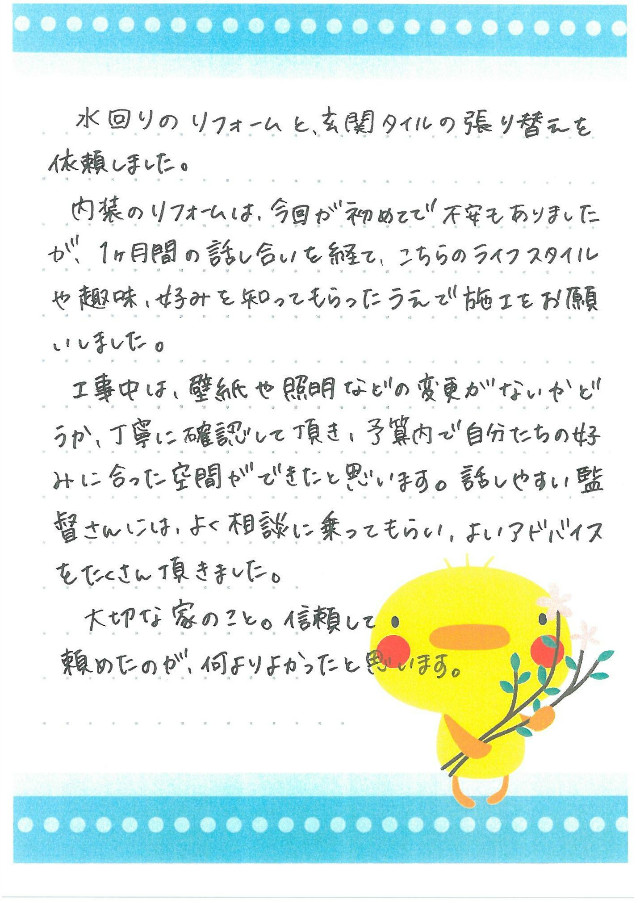 水回りのリフォームと、玄関タイルの張り替えを
依頼しました。
内装のリフォームは、今回が初めてで不安もありました
が、1ヶ月間の話し合いを経て、こちらのライフスタイル
や趣味、好みを知ってもらったうえで施工をお願
いしました。
工事中は、壁紙や照明などの変更がないかど
うか、丁寧に確認して頂き、予算内で自分たちの好
みに合った空間ができたと思います。話しやすい監
督さんには、よく相談に乗ってもらい、よいアドバイス
をたくさん頂きました。
大切な家のこと。信頼して
頼めたのが、何よりよかったと思います。